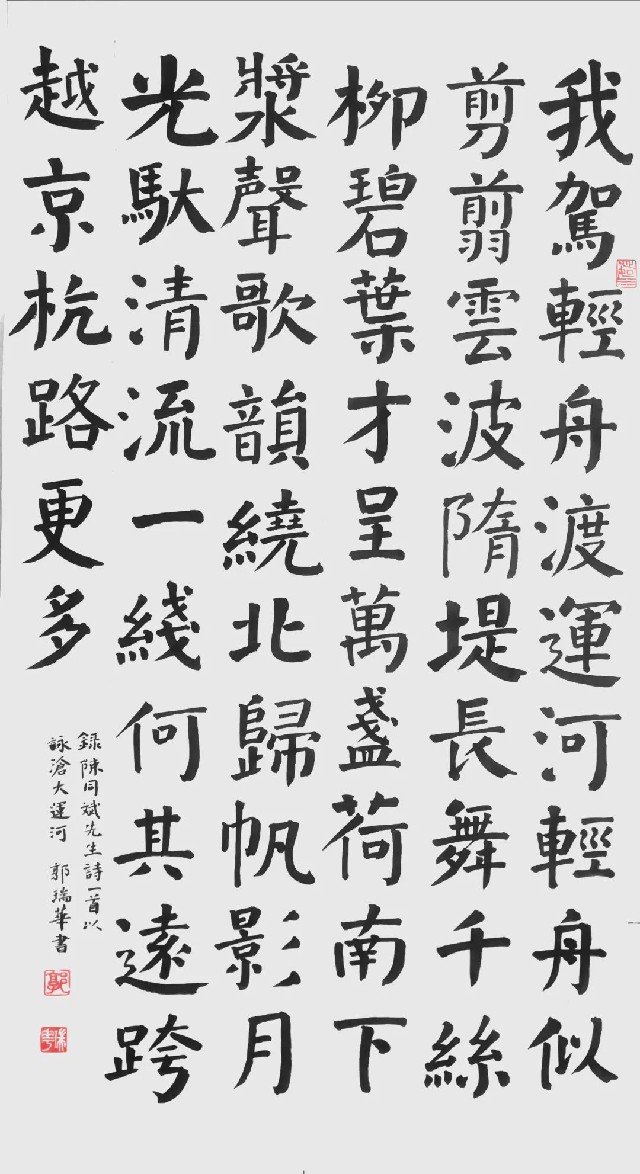 我駕輕舟渡運河輕舟似
剪剪雲波隋堤長舞千絲
柳碧葉才呈萬盞荷南下
漿聲歌韻繞北歸帆影月
光馱清流一綫何其遠跨
越京杭路更多
録陳同斌先生詩一首以
詠滄大運河 郭瑞華書